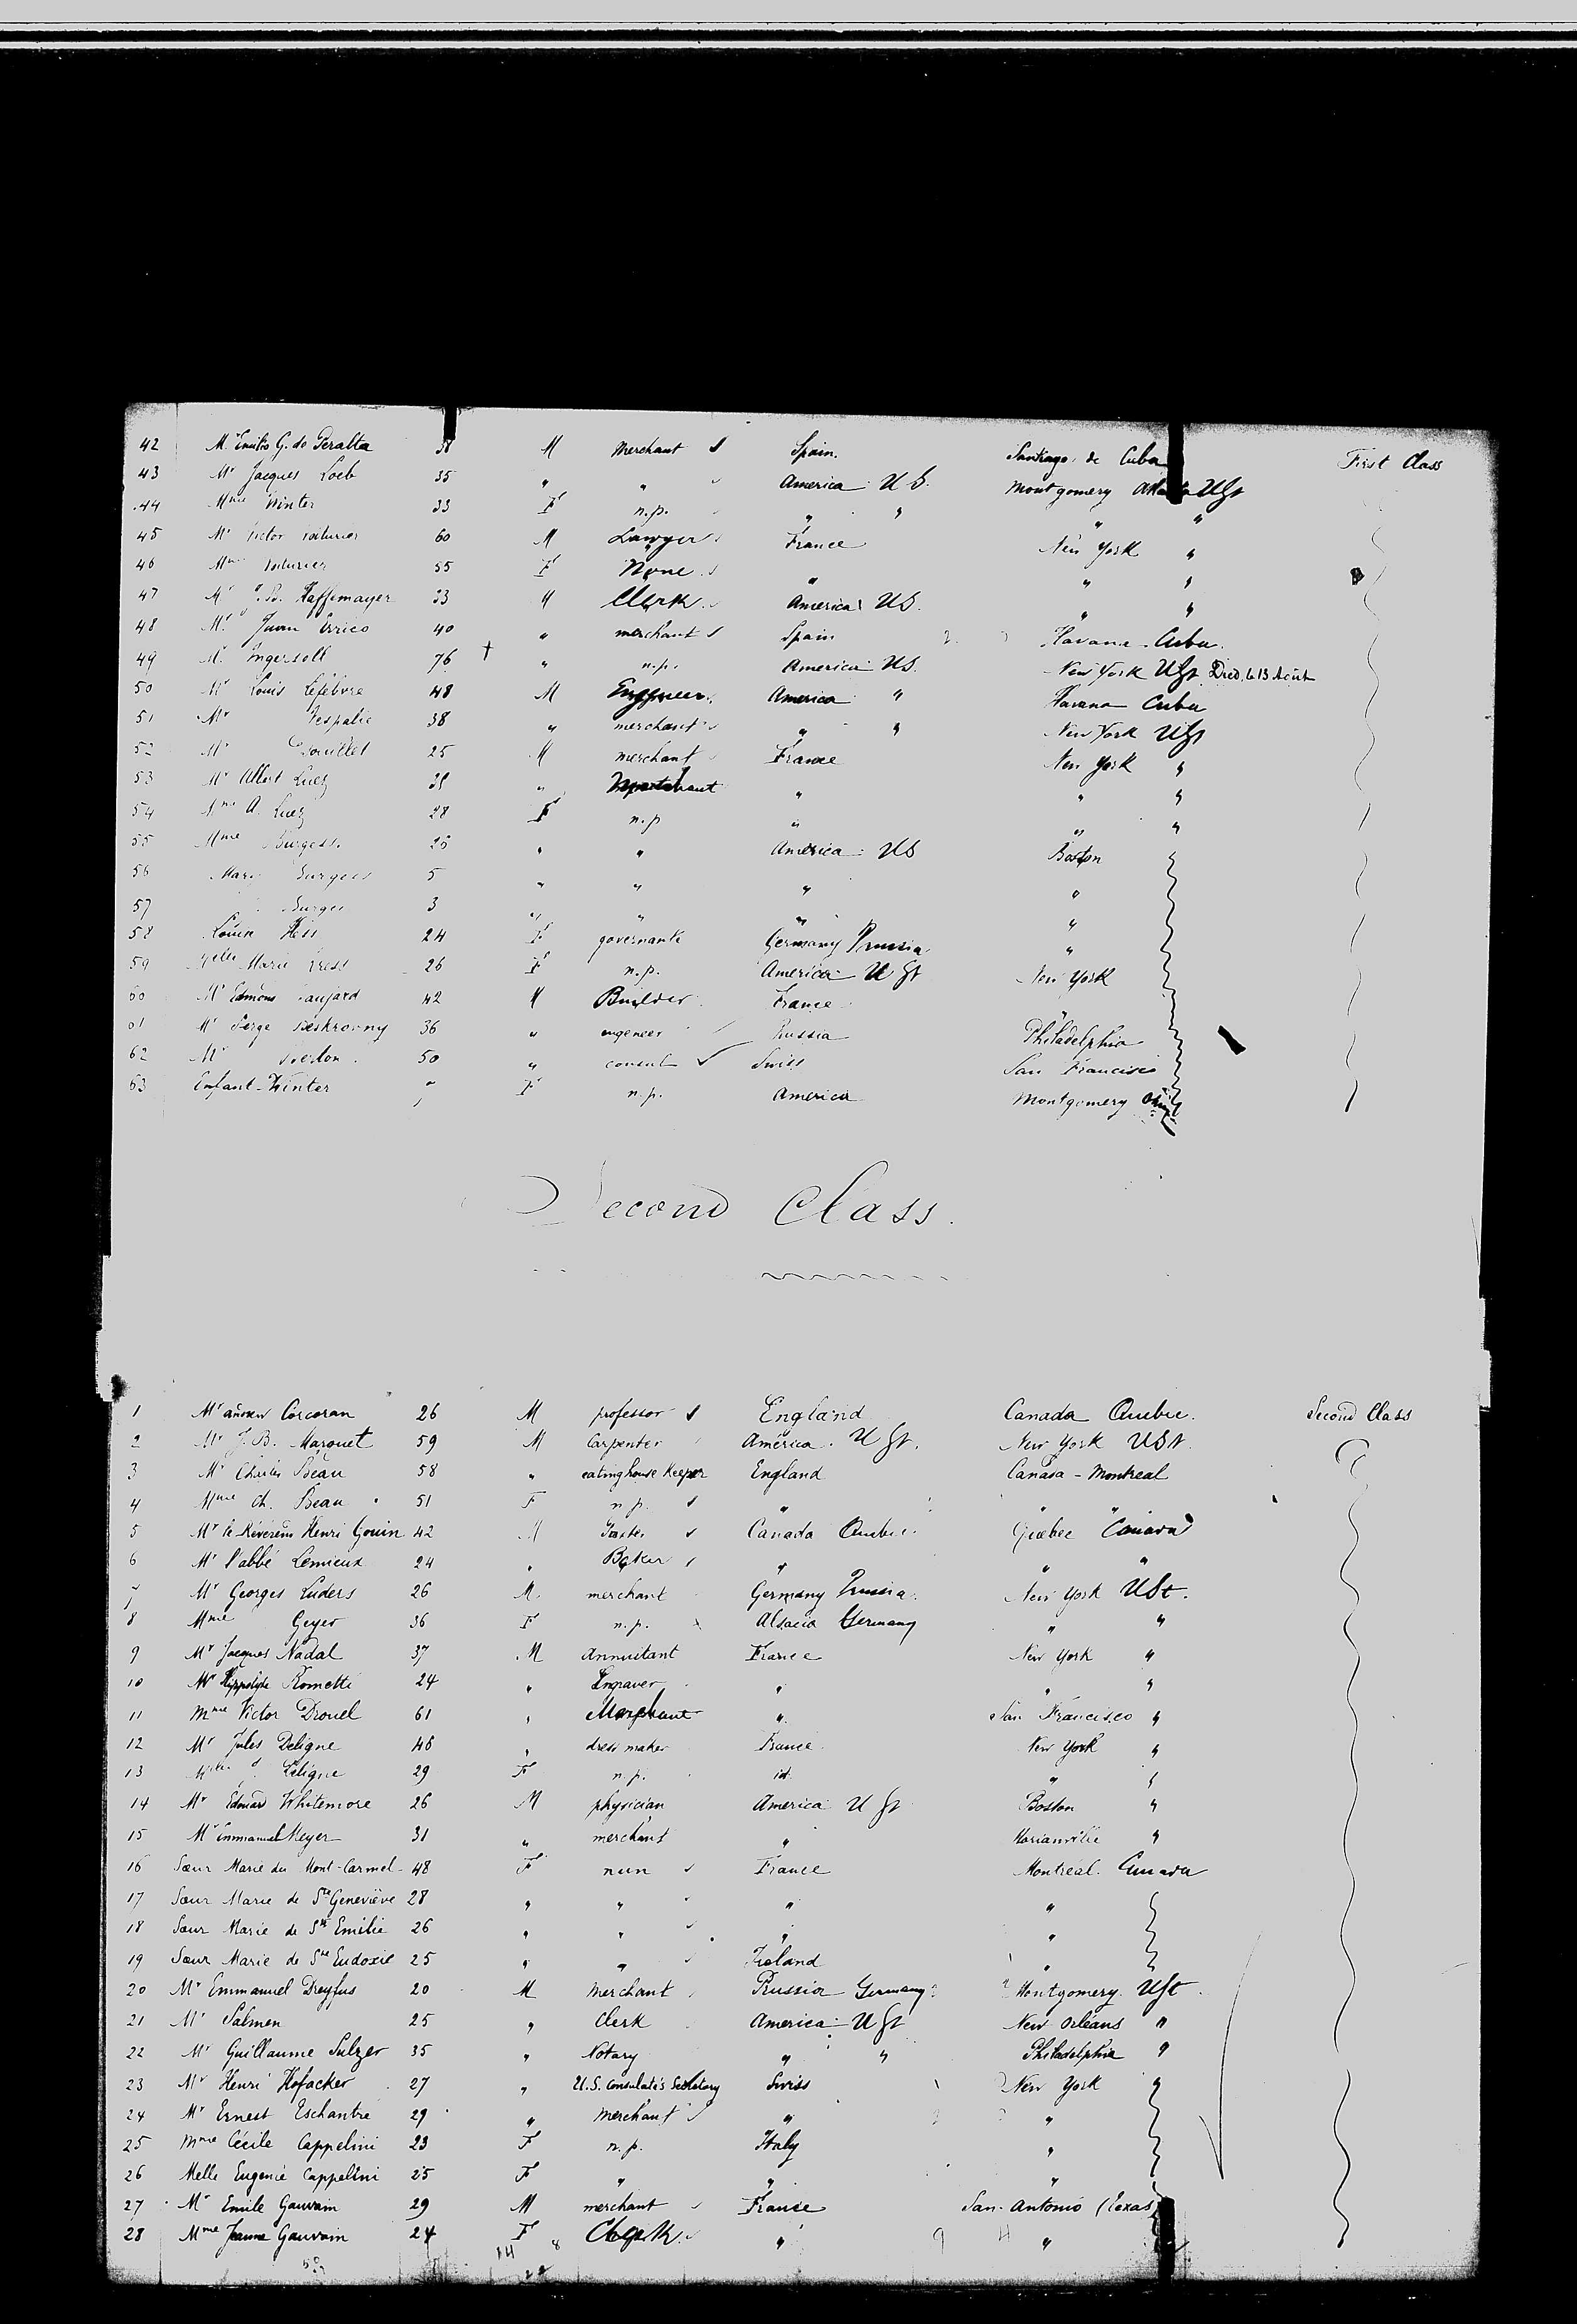 42 Mr Emilio G. de Peralta 38 M merchant Spain. Santiago de Cuba First Class
43 Mr Jacques Loeb 35 " " America US. Montgomery USt
44 Mme Winter 33 F n.p. " " " "
45 Mr Victor 60 M Lawyer France New York "
46 Mme 55 F None " " "
47 Mr J.B. Haffemayer 33 M Clerk America US. " "
48 Mr Juan Errico 40 " merchant Spain Havana Cuba.
49 Mr Ingersoll 76 † " n.p. America US. New York USt Died, le 13 Août
50 Mr Louis Lefebvre 48 M Engineer America " Havana Cuba
51 Mr 38 " merchant " " New York USt
52 Mr 25 M merchant France New York "
53 Mr Albert Luez " Merchant " " "
54 Mme A. Luez 28 F n.p " " "
55 Mme Burgess. 26 " " America US Boston
56 Mary Burgess 5 " " " "
57 Burges 3 " " " "
58 Louise Hess 24 F governante Germany Prussia "
59 Melle Marie Hess 26 F n.p. America USt New York
60 Mr Edmond 42 M Builder France "
61 Mr Serge 36 " engeneer Russia Philadelphia
62 Mr 50 " consul Swiss San Francisco
63 Enfant Winter F n.p. America Montgomery
Second Class.
1 Mr Corcoran 26 M professor England Canada Quebec. Second Class
2 Mr J.B. Marquet 59 M Carpenter America. USt. New York USt.
3 Mr Charles Beau 58 " eatinghouse Keeper England Canada - Montreal
4 Mme Ch. Beau 51 F n.p. " " "
5 Mr le Révérend Henri Gouin 42 M Canada Quebec. Quebec Canada
6 Mr l'abbé Lemieux 24 " Baker " " "
7 Mr Georges Luders 26 M. merchant Germany Prussia. New York USt.
8 Mme Geyer 36 F n.p. Alsacia Germany " "
9 Mr Jacques Nadal 37 M Annuitant France New York "
10 Mr Hippolyte Rometti 24 " Engraver " " "
11 Mme Victor Drouel 61 " Merchant " San Francisco "
12 Mr Jules Deligne 46 " dress maker France New York "
13 Deligne 29 F n.p. id " "
14 Mr Edouard Whitemore 26 M physician America USt Boston "
15 Mr Emmanuel Meyer 31 " merchant " "
16 Sœur Marie du Mont-Carmel 48 F nun France Montreal. Canada
17 Sœur Marie de Ste Geneviève 28 " " " "
18 Sœur Marie de Ste Emilie 26 " " " "
19 Sœur Marie de Ste Eudoxie 25 " " Ireland "
20 Mr Emmanuel Dreyfus 20 M merchant Prussia Germany Montgomery. USt.
21 Mr Salmen 25 " Clerk America USt New Orléans "
22 Mr Guillaume Sulzer 35 " Notary " " Philadelphia "
23 Mr Henri Hofacker 27 " U.S. Consulate's Secretary Swiss New York "
24 Mr Ernest Eschantre 29 " merchant " "
25 Mme Cécile Cappelini 23 F n.p. Italy "
26 Melle Eugenie Cappelini 25 F " " "
27 Mr Emile Gauvain 29 M merchant France San-Antonio (Texas
28 Mme Jeanne Gauvain 24 F Clerk " "